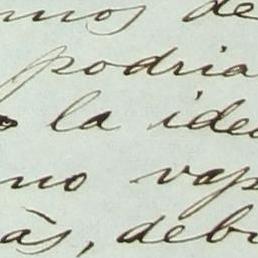 mos de
podria
la idea
no vap
às, deb